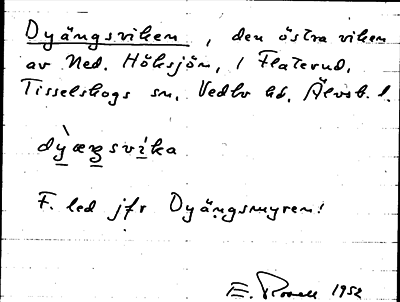 Dyängsviken, den östra viken
av Ned. Höksjön, i Flaterud,
Tisselskogs sn, Vedbo hd, Älvsb. l.
dỳæŋsvika
F. led jfr Dyängsmyren!
E. 1952